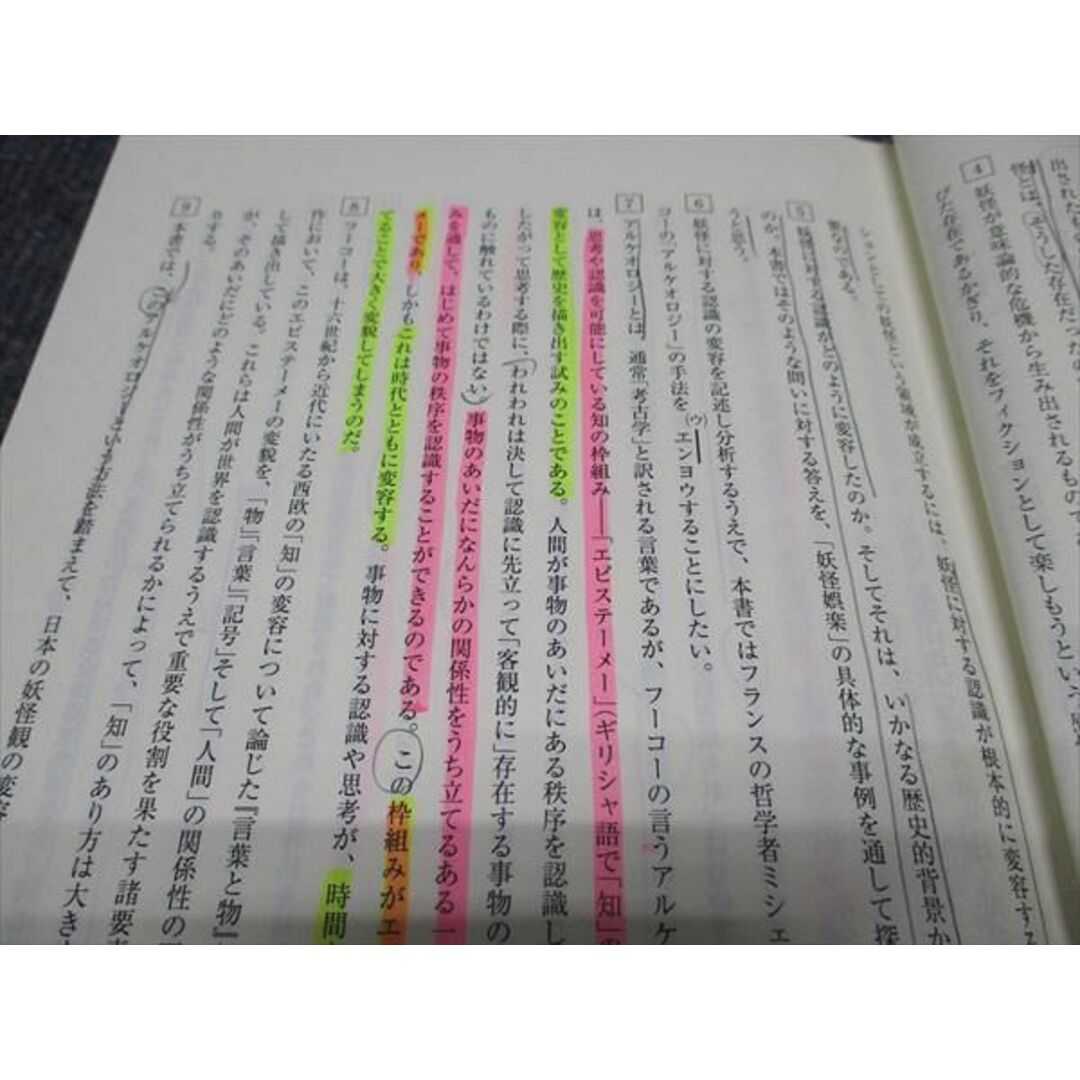 出されたもの
うした存在だったの
4 妖怪が意味論的な危機から生み出されるもので
びた存在であるかぎり、それをフィクションとして楽しもうという
ションとしての妖怪という領域が成立するには、妖怪に対する認識が根本的に変容す
要なのである。
5 妖怪に対する認識がどのように変容したのか。そしてそれは、いかなる歴史的背景か
のか。本書ではそのような問いに対する答えを、「妖怪娯楽」の具体的な事例を通して探
うと思う。
6 妖怪に対する認識の変容を記述し分析するうえで、本書ではフランスの哲学者ミシェ
コーの「アルケオロジー」の手法を(ウ)エンヨウすることにしたい。
7 アルケオロジーとは、通常「考古学」と訳される言葉であるが、フーコーの言うアルケ
は、思考や認識を可能にしている知の枠組み――「エピステーメー」(ギリシャ語で「知」の
変容として歴史を描き出す試みのことである。人間が事物のあいだにある秩序を認識し
したがって思考する際に、われわれは決して認識に先立って「客観的に」存在する事物の
ものに触れているわけではない。事物のあいだになんらかの関係性をうち立てるある一
みを通して、はじめて事物の秩序を認識することができるのである。この枠組みがエ
メーであり、しかもこれは時代とともに変容する。事物に対する認識や思考が、時間
てることで大きく変貌してしまうのだ。
8 フーコーは、十六世紀から近代にいたる西欧の「知」の変容について論じた『言葉と物』
作において、このエピステーメーの変貌を、「物」「言葉」「記号」そして「人間」の関係性の
して描き出している。これらは人間が世界を認識するうえで重要な役割を果たす諸要素
が、そのあいだにどのような関係性がうち立てられるかによって、「知」のあり方は大き
する。
9 本書では、このアルケオロジーという方法を踏まえて、日本の妖怪観の変容